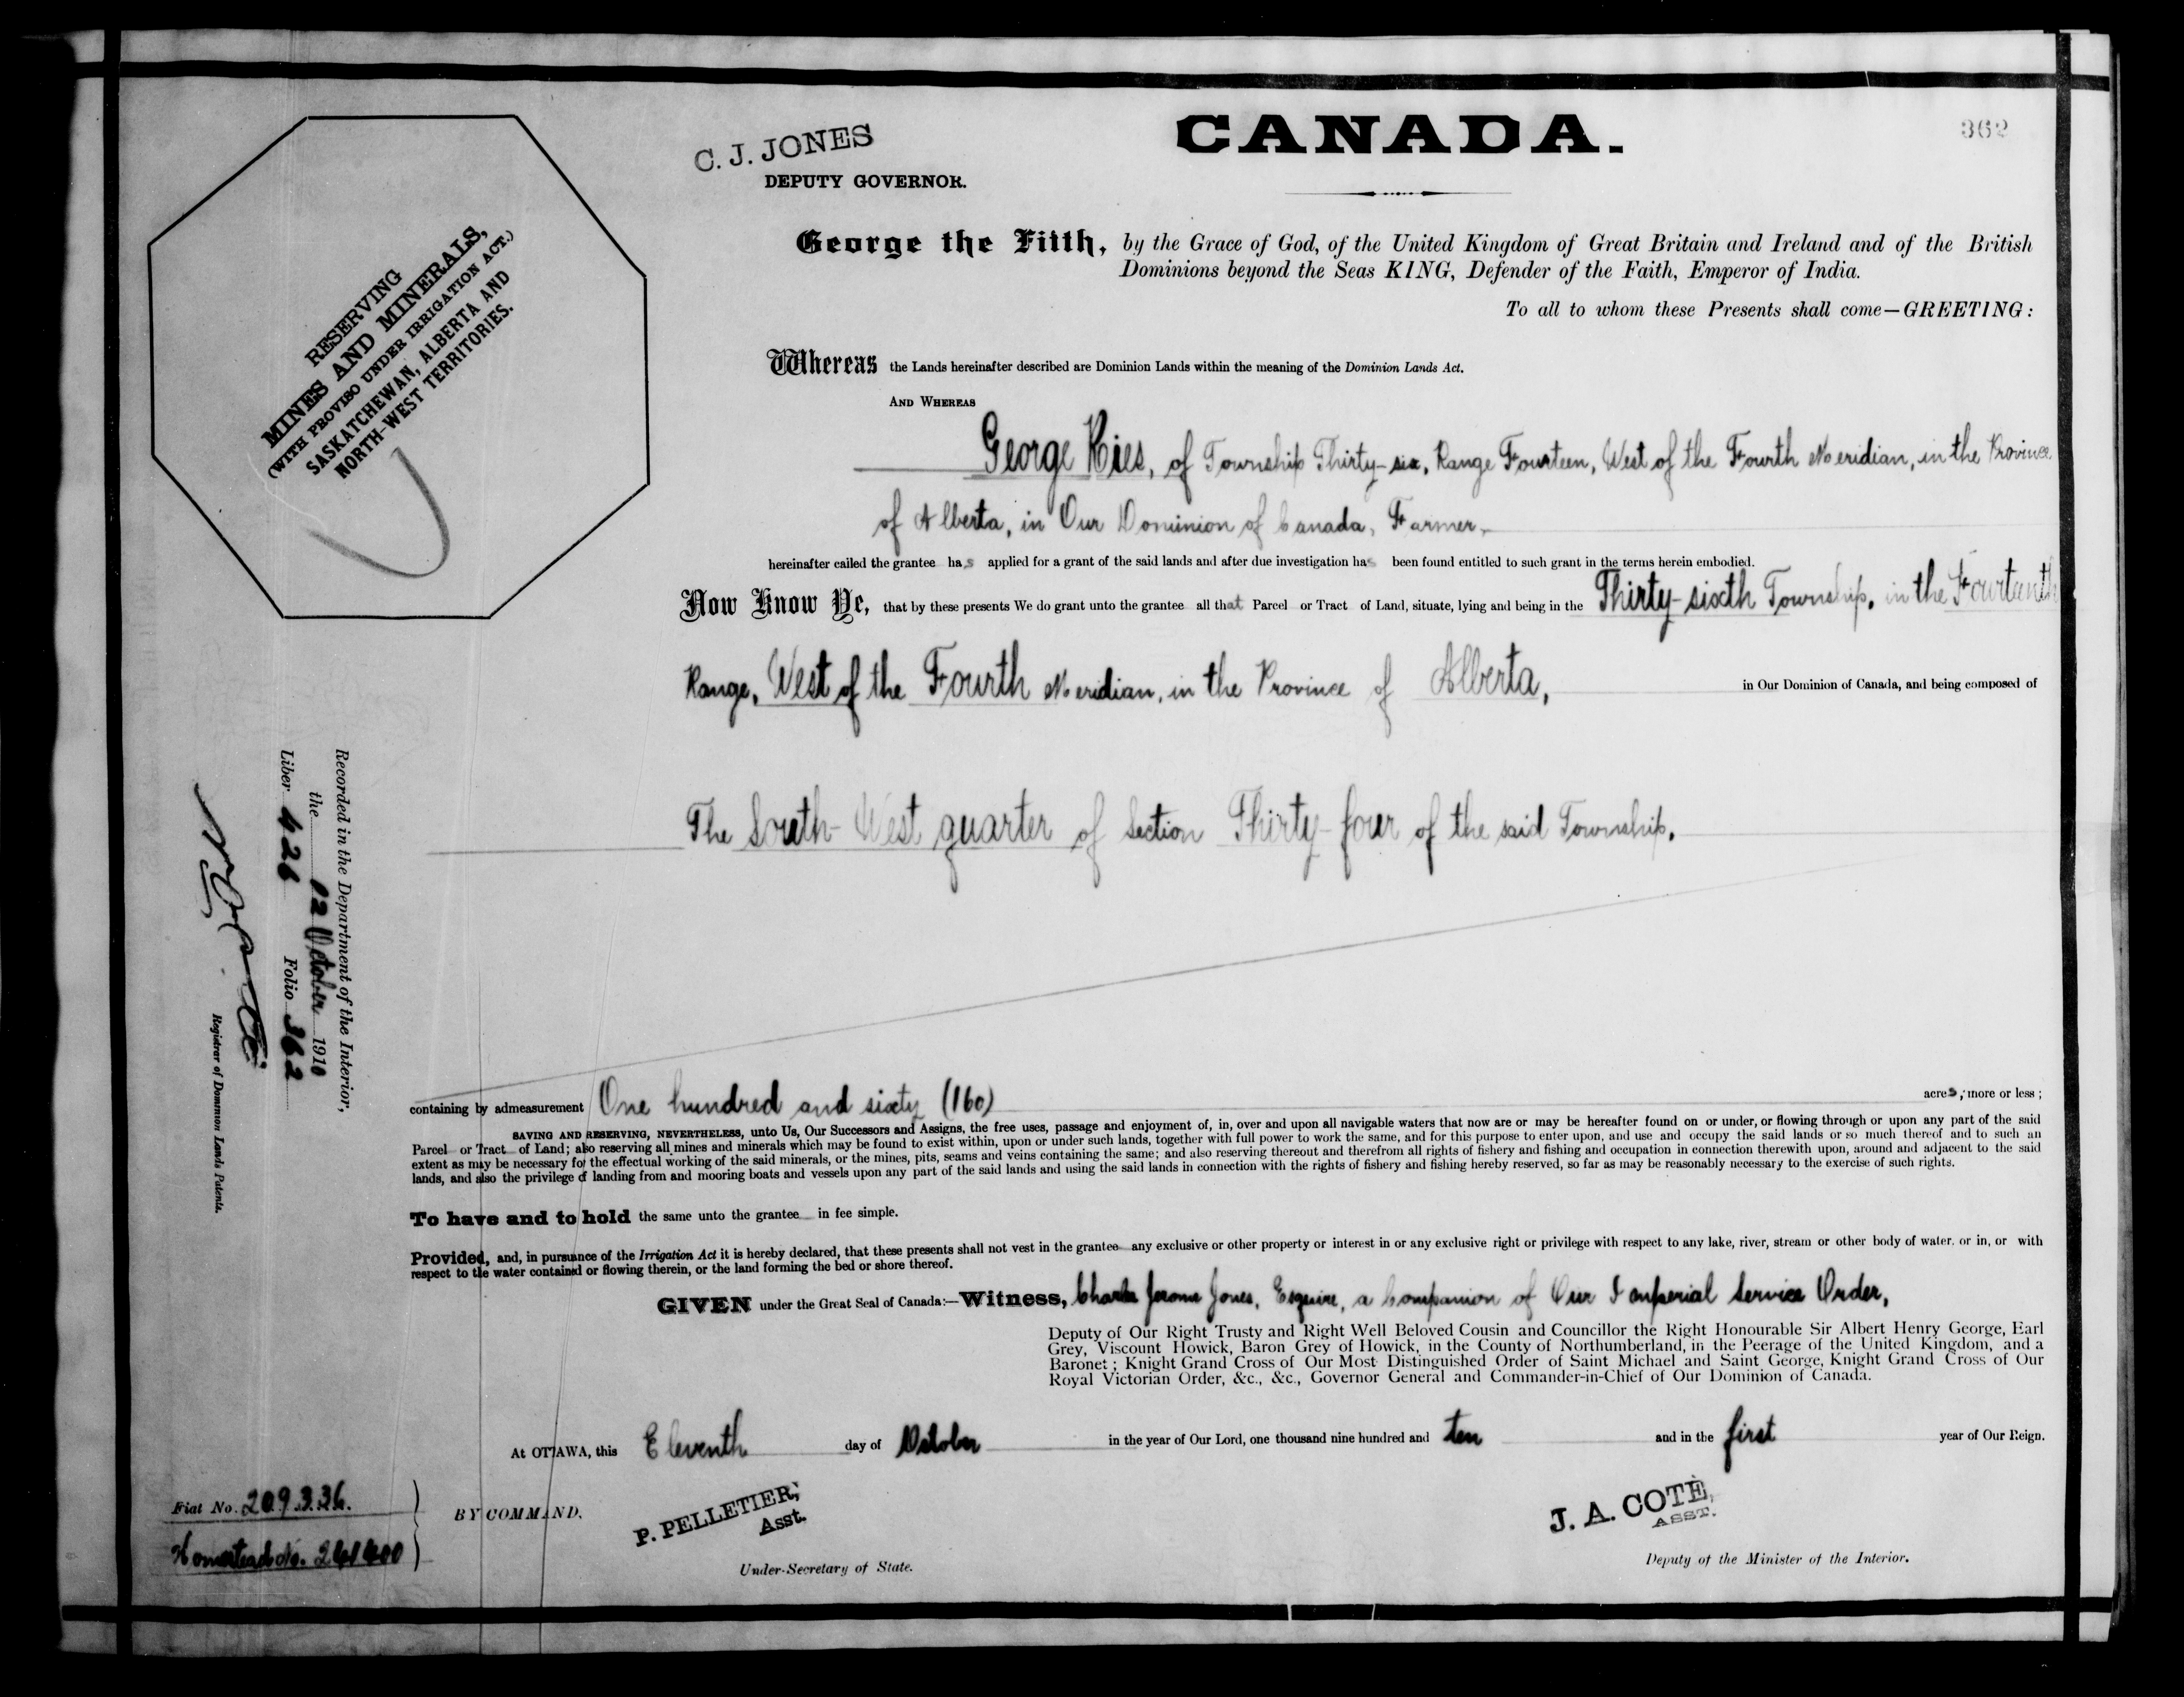 CANADA.
362
C. J. JONES
DEPUTY GOVERNOR.
RESERVING
MINES AND MINERALS,
(WITH PROVISO UNDER IRRIGATION ACT.)
SASKATCHEWAN, ALBERTA AND
NORTH-WEST TERRITORIES.
George the Fifth, by the Grace of God, of the United Kingdom of Great Britain and Ireland and of the British
Dominions beyond the Seas KING, Defender of the Faith, Emperor of India.
To all to whom these Presents shall come—GREETING:
Whereas the Lands hereinafter described are Dominion Lands within the meaning of the Dominion Lands Act.
AND WHEREAS
George Ries, of Township Thirty-six, Range Fourteen, West of the Fourth Meridian, in the Province
of Alberta, in Our Dominion of Canada, Farmer,
hereinafter called the grantee has applied for a grant of the said lands and after due investigation has been found entitled to such grant in the terms herein embodied.
Now Know Ye, that by these presents We do grant unto the grantee all that Parcel or Tract of Land, situate, lying and being in the Thirty-sixth Township, in the Fourteenth
Range, West of the Fourth Meridian, in the Province of Alberta, in Our Dominion of Canada, and being composed of
The South-West quarter of Section Thirty-four of the said Township.
containing by admeasurement One hundred and sixty (160) acres, more or less;
SAVING AND RESERVING, NEVERTHELESS, unto Us, Our Successors and Assigns, the free uses, passage and enjoyment of, in, over and upon all navigable waters that now are or may be hereafter found on or under, or flowing through or upon any part of the said
Parcel or Tract of Land; also reserving all mines and minerals which may be found to exist within, upon or under such lands, together with full power to work the same, and for this purpose to enter upon, and use and occupy the said lands or so much thereof and to such an
extent as may be necessary for the effectual working of the said minerals, or the mines, pits, seams and veins containing the same; and also reserving thereout and therefrom all rights of fishery and fishing and occupation in connection therewith upon, around and adjacent to the said
lands, and also the privilege of landing from and mooring boats and vessels upon any part of the said lands and using the said lands in connection with the rights of fishery and fishing hereby reserved, so far as may be reasonably necessary to the exercise of such rights.
To have and to hold the same unto the grantee in fee simple.
Provided, and, in pursuance of the Irrigation Act it is hereby declared, that these presents shall not vest in the grantee any exclusive or other property or interest in or any exclusive right or privilege with respect to any lake, river, stream or other body of water. or in, or with
respect to the water contained or flowing therein, or the land forming the bed or shore thereof.
GIVEN under the Great Seal of Canada:—Witness, Charles Jerome Jones, Esquire, a Companion of Our Imperial Service Order,
Deputy of Our Right Trusty and Right Well Beloved Cousin and Councillor the Right Honourable Sir Albert Henry George, Earl
Grey, Viscount Howick, Baron Grey of Howick, in the County of Northumberland, in the Peerage of the United Kingdom, and a
Baronet; Knight Grand Cross of Our Most Distinguished Order of Saint Michael and Saint George, Knight Grand Cross of Our
Royal Victorian Order, &c., &c., Governor General and Commander-in-Chief of Our Dominion of Canada.
At OTTAWA, this Eleventh day of October in the year of Our Lord, one thousand nine hundred and ten and in the first year of Our Reign.
BY COMMAND,
P. PELLETIER,
Asst.
Under-Secretary of State.
J. A. COTÉ,
ASST.
Deputy of the Minister of the Interior.
Recorded in the Department of the Interior,
the 12 October 1910
Liber 426 Folio 362
Registrar of Dominion Lands Patents.
Fiat No. 209336.
Homestead No.